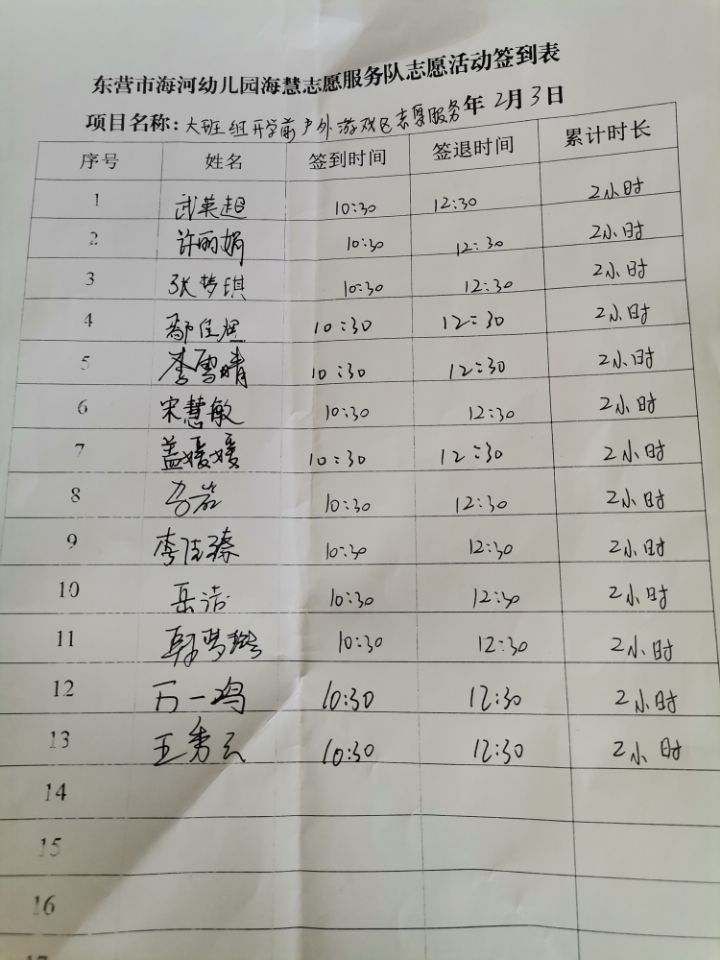 东营市海河幼儿园海慧志愿服务队志愿活动签到表
项目名称：大班组开学前户外游戏区志愿服务 年 2月 3日
序号 姓名 签到时间 签退时间 累计时长
1 武英超 10:30 12:30 2小时
2 许丽娟 10:30 12:30 2小时
3 张梦琪 10:30 12:30 2小时
4 10:30 12:30 2小时
5 李雪晴 10:30 12:30 2小时
6 宋慧敏 10:30 12:30 2小时
7 盖媛媛 10:30 12:30 2小时
8 10:30 12:30 2小时
9 李佳臻 10:30 12:30 2小时
10 岳洁 10:30 12:30 2小时
11 10:30 12:30 2小时
12 万一鸣 10:30 12:30 2小时
13 王秀云 10:30 12:30 2小时
14
15
16